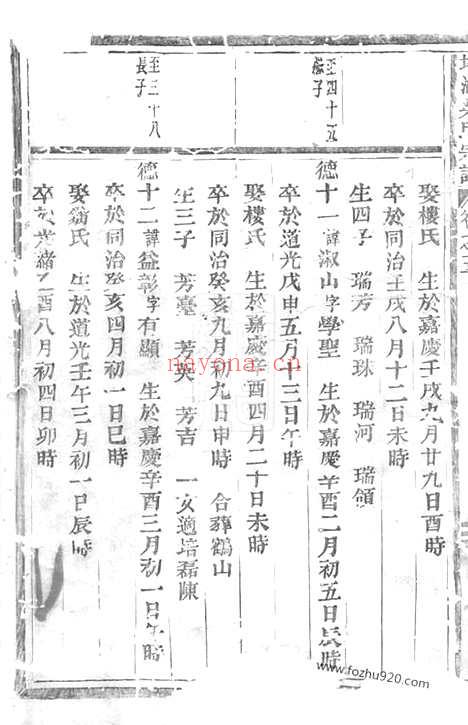 娶樓氏 生於嘉慶壬戌九月廿九日酉時
卒於同治壬戌八月十二日未時
生四子 瑞芳 瑞珠 瑞河 瑞領
至四十五
德十一諱淑山字學聖 生於嘉慶辛酉二月初五日辰時
卒於道光戊申五月十三日午時
娶樓氏 生於嘉慶辛酉四月二十日未時
卒於同治癸亥九月初九日申時 合葬鶴山
生三子 芳臺 芳英 芳吉 一女適培磊陳
至三十八
長子
德十二諱益彰字有顯 生於嘉慶辛酉三月初一日午時
卒於同治癸亥四月初一日巳時
娶翁氏 生於道光壬午三月初一日辰時
卒於光緒乙酉八月初四日卯時
nayona.cn
www.fozhu920.com